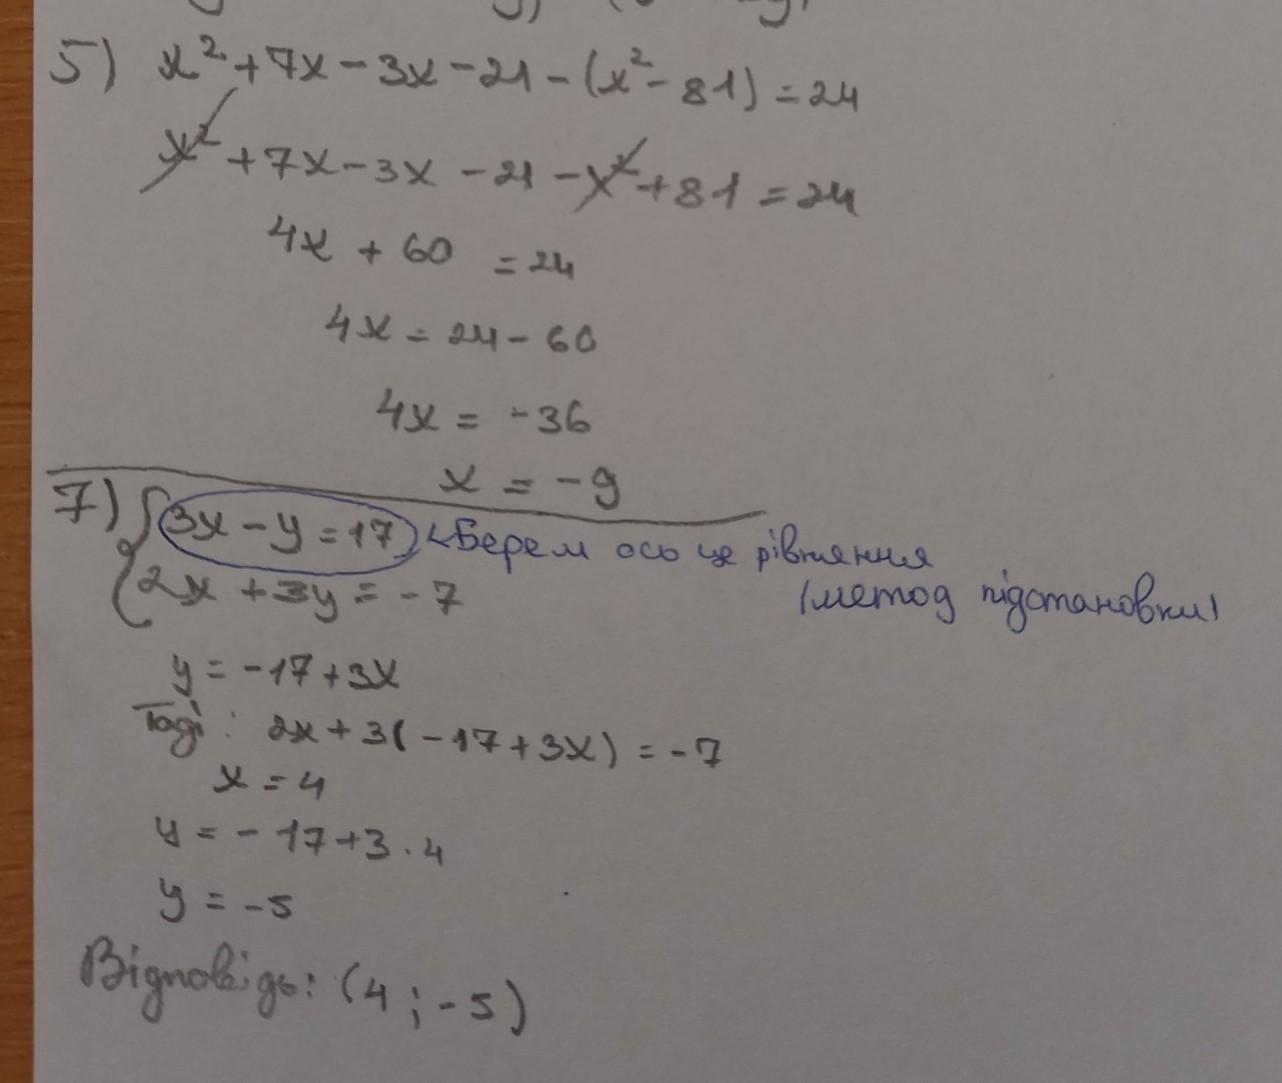 5) x² + 7x - 3x - 21 - (x² - 81) = 24
x² + 7x - 3x - 21 - x² + 81 = 24
4x + 60 = 24
4x = 24 - 60
4x = -36
x = -9
7) { 3x - y = 17 < Берем осо це рівняння
2x + 3y = -7 (метод підстановки)
y = -17 + 3x
Тоді: 2x + 3(-17 + 3x) = -7
x = 4
y = -17 + 3 · 4
y = -5
Відповідь: (4 ; -5)